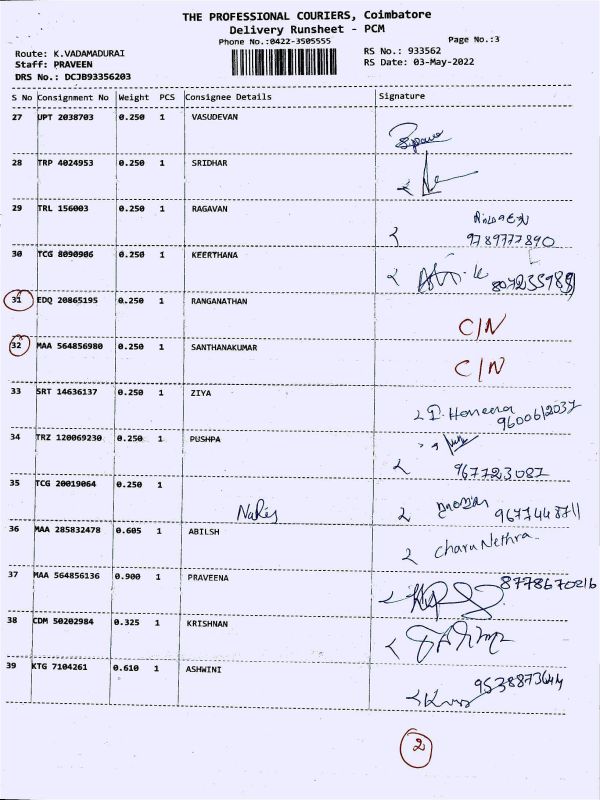 THE PROFESSIONAL COURIERS, Coimbatore
Delivery Runsheet - PCM
Phone No.:0422-3505555
Page No.:3
Route: K.VADAMADURAI
Staff: PRAVEEN
DRS No.: DCJB93356203
RS No.: 933562
RS Date: 03-May-2022
S No Consignment No Weight PCS Consignee Details Signature
27 UPT 2038703 0.250 1 VASUDEVAN
28 TRP 4024953 0.250 1 SRIDHAR
29 TRL 156003 0.250 1 RAGAVAN
9789777890
30 TCG 8090906 0.250 1 KEERTHANA
31 EDQ 20865195 0.250 1 RANGANATHAN C/N
32 MAA 564856980 0.250 1 SANTHANAKUMAR C/N
33 SRT 14636137 0.250 1 ZIYA
9600612037
34 TRZ 120069230 0.250 1 PUSHPA
967723087
35 TCG 20019064 0.250 1
9677448711
36 MAA 285832478 0.605 1 ABILSH Charu Nethra
37 MAA 564856136 0.900 1 PRAVEENA 8778670216
38 CDM 50202984 0.325 1 KRISHNAN
39 KTG 7104261 0.610 1 ASHWINI 9538873644
2